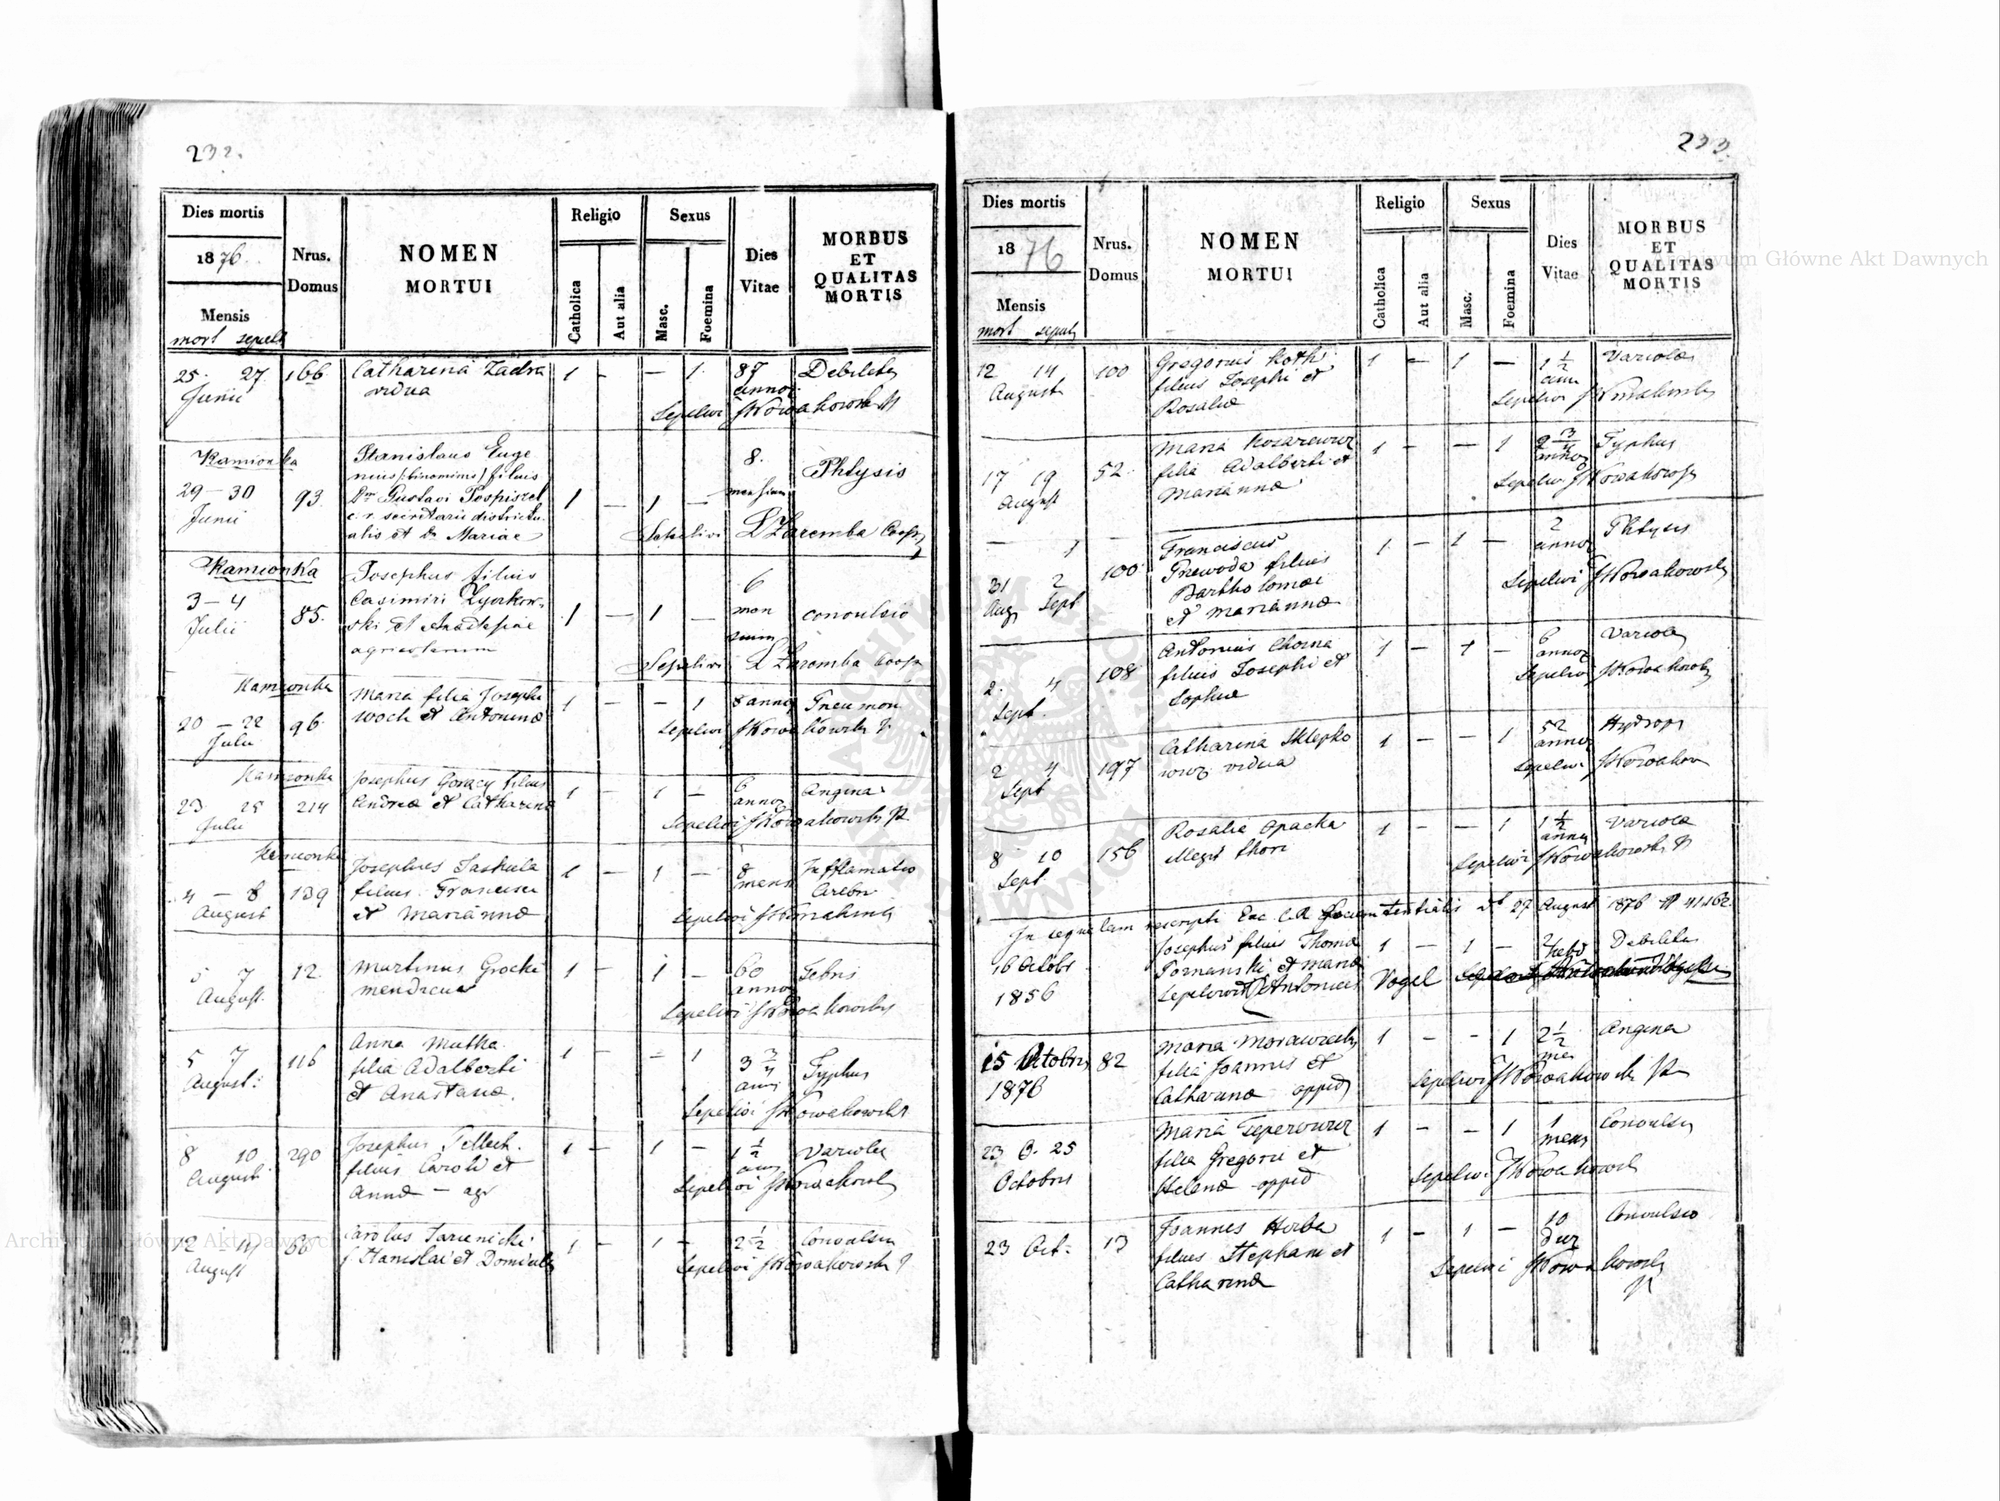 232.
Dies mortis
1876.
Mensis
mort sepult
Nrus.
Domus
NOMEN
MORTUI
Religio
Catholica
Aut alia
Sexus
Masc.
Foemina
Dies
Vitae
MORBUS
ET
QUALITAS
MORTIS
25. 27. 166 Catharina Zadra 1 - - 1. 87 Debilitas
Junii vidua annor
Sepelivi JNowakowski
Kamionka Stanislaus Euge 8. Phtysis
nius /:binominis/ filius
29-30 93. Gustavi Pospiszel 1 - 1 - mensium
Junii c. r. secretarii districtu
alis et Mariae Sepelivi LZaremba Coop
Kamionka Josephus filius 6
3-4 85. Casimiri 1 - 1 - men convulsio
Julii ski et Anastasiae sium
agricolarum Sepelivi L Zaremba Coop
Kamionka Maria filia Josephi 1 - - 1 8 annor Pneumon
20 - 22 96. Woch et Antoninae Sepelivi JNowakowski
Julii
Kamionka Josephus Goracy filius 1 - 1 - 6 Angina
23. 25 214 Andreae et Catharinae annor
Julii Sepelivi JNowakowski
Kamionka Josephus Jaskula 1 - 1 - 8 Infflamatio
4 - 8 139 filius Francisci mens Cerebri
August et Mariannae Sepelivi
5 7 12. Martinus Grocki 1 - 1 - 60 Febris
August. mendicus annor
Sepelivi JNowakowski
5 7 116 Anna Mutka 1 - - 1 3 3/4 Typhus
August: filia Adalberti anni
et Anastasiae. Sepelivi JNowakowski
8 10 290 Josephus 1 - 1 - 1 1/2 Variola
August filius Caroli et
Annae - agr Sepelivi JNowakowski
12 - 14 56 Carolus Tarnicki 1 - 1 - 2 1/2 Convulsio
August f. Stanislai et Sepelivi JNowakowski
233.
Dies mortis
1876
Mensis
mort sepult
Nrus.
Domus
NOMEN
MORTUI
Religio
Catholica
Aut alia
Sexus
Masc.
Foemina
Dies
Vitae
MORBUS
ET
QUALITAS
MORTIS
12 14 100 Gregorius Koth 1 - 1 - 1 1/2 Variola
August filius Josephi et ann
Rosaliae Sepelivi
17 19 52. Maria Kosarewicz 1 - - 1 2 3/4 Typhus
August filia Adalberti et annor
Mariannae Sepelivi JNowakowski
31 2 100 Franciscus 1 - 1 - 2 Phtysis
Aug Sept filius annor
Bartholomaei Sepelivi JNowakowski
et Mariannae
2. 4 108 Antonius Chorna 1 - 1 - 6 Variola
Sept. filius Josephi et annor
Sophiae Sepelivi JNowakowski
2 4 197 Catharina Sklepko 1 - - 1 52 Hydrops
Sept wicz vidua annor
Sepelivi JNowakow
8 10 156 Rosalia Opacka 1 - - 1 1 1/2 Variola
Sept illegit thori anni
Sepelivi JNowakowski
In sequelam rescripti Exc. C.R. Locumtentialis 27 August 1876 41162
16 Octobr Josephus filius Thomae 1 - 1 - 2 hebd Debilitas
1856 Poznanski et Mariae Vogel
Sepelivit Antonius
15 Octobris 82 Maria Morawiecka 1 - - 1 2 1/2 Angina
1876 filia Joannis et mens
Catharinae - oppid Sepelivi JNowakowski
23 25 Maria 1 - - 1 1 Convulsio
Octobris filia Gregorii et mens
Helenae - oppid Sepelivi JNowakowski
23 Oct. 13 Joannes Horba 1 - 1 - 10 Convulsio
filius Stephani et dier
Catharinae Sepelivi JNowakowski
Archiwum Główne Akt Dawnych
Archiwum Główne Akt Dawnych
ARCHIWUM GŁÓWNE AKT DAWNYCH